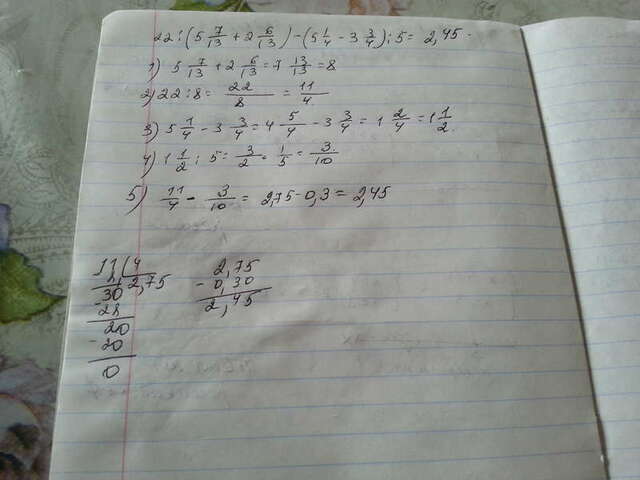 22:(5 7/13 + 2 6/13) - (5 1/4 - 3 3/4) : 5 = 2,45.
1) 5 7/13 + 2 6/13 = 7 13/13 = 8
2) 22 : 8 = 22/8 = 11/4
3) 5 1/4 - 3 3/4 = 4 5/4 - 3 3/4 = 1 2/4 = 1 1/2.
4) 1 1/2 : 5 = 3/2 · 1/5 = 3/10
5) 11/4 - 3/10 = 2,75 - 0,3 = 2,45
11 4
2,75
-30
28
20
-20
0
2,75
- 0,30
2,45